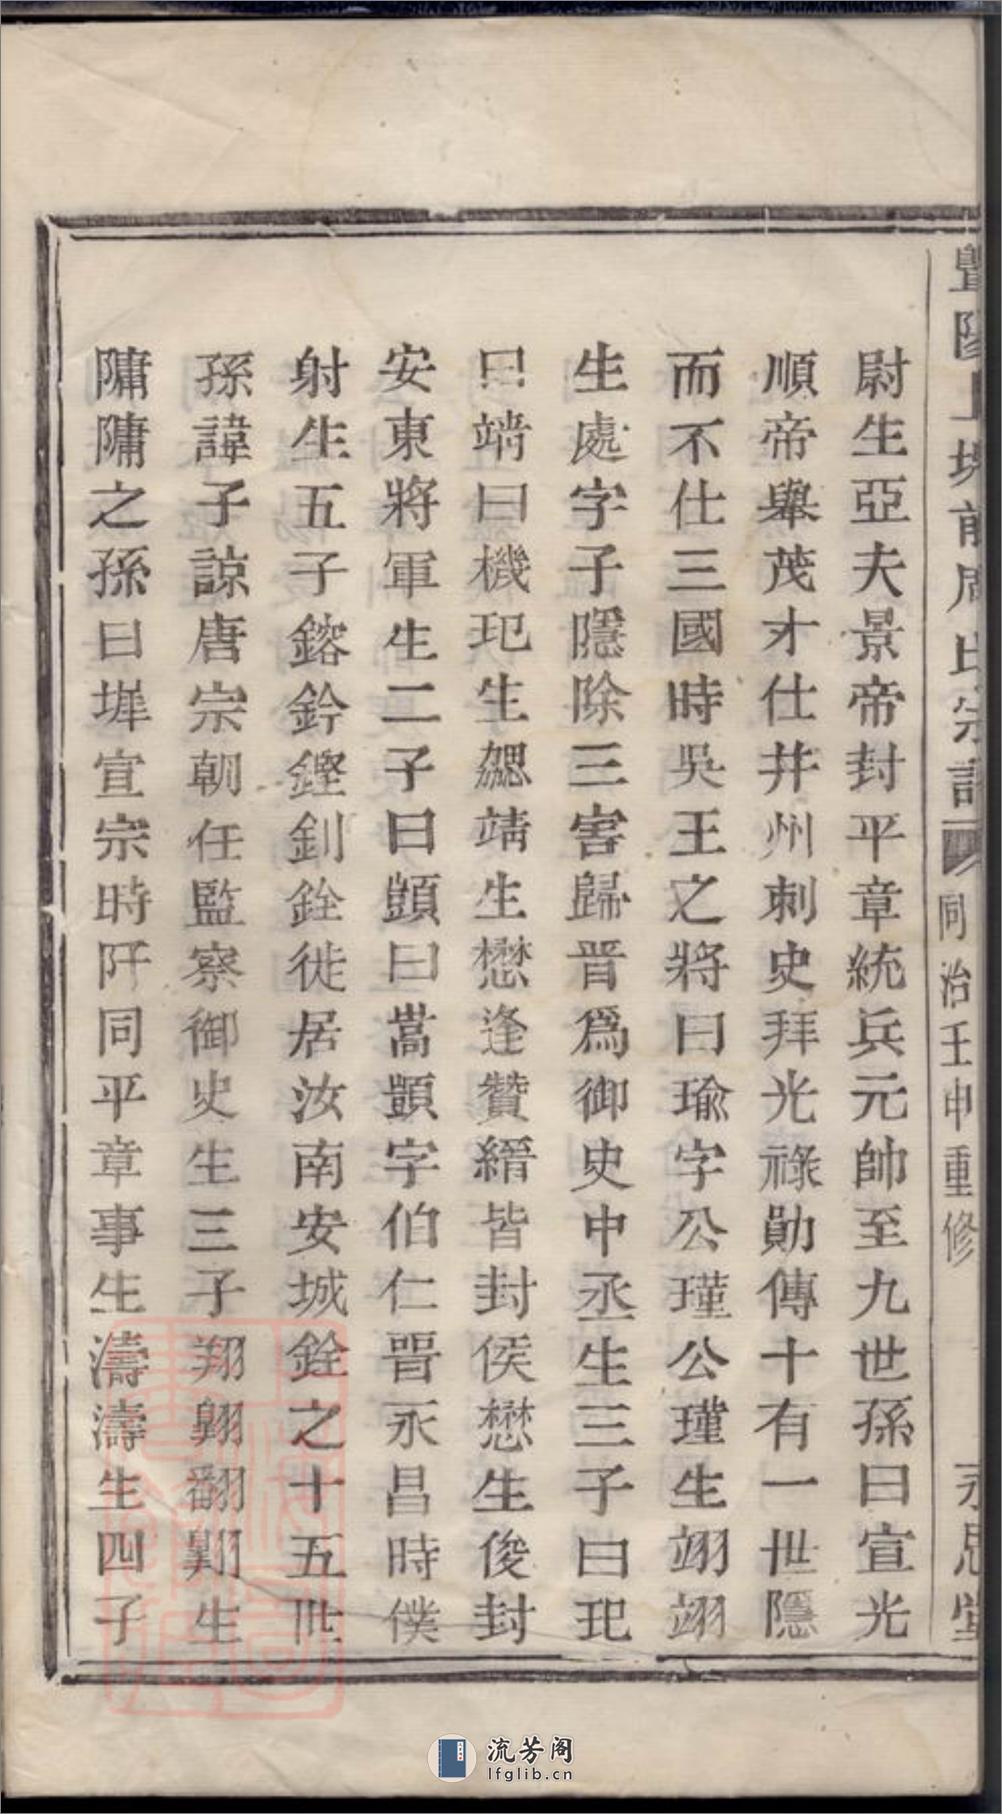 暨陽上塊前周氏宗譜 同治壬申重修 永思堂
尉生亞夫景帝封平章統兵元帥至九世孫曰宣光
順帝舉茂才仕井州刺史拜光祿勛傳十有一世隱
而不仕三國時吳王之將曰瑜字公瑾公瑾生翊翊
生處字子隱除三害歸晋為御史中丞生三子曰玘
曰靖曰機玘生勰靖生懋逢贊縉皆封侯懋生俊封
安東將軍生二子曰顗曰嵩顗字伯仁晋永昌時僕
射生五子鎔鈐鏗釗銓徙居汝南安城銓之十五世
孫諱子諒唐宗朝任監察御史生三子翔翱翻生
隋隋之孫曰墀宣宗時阡同平章事生濤濤生四子
流芳阁
lfglib.cn